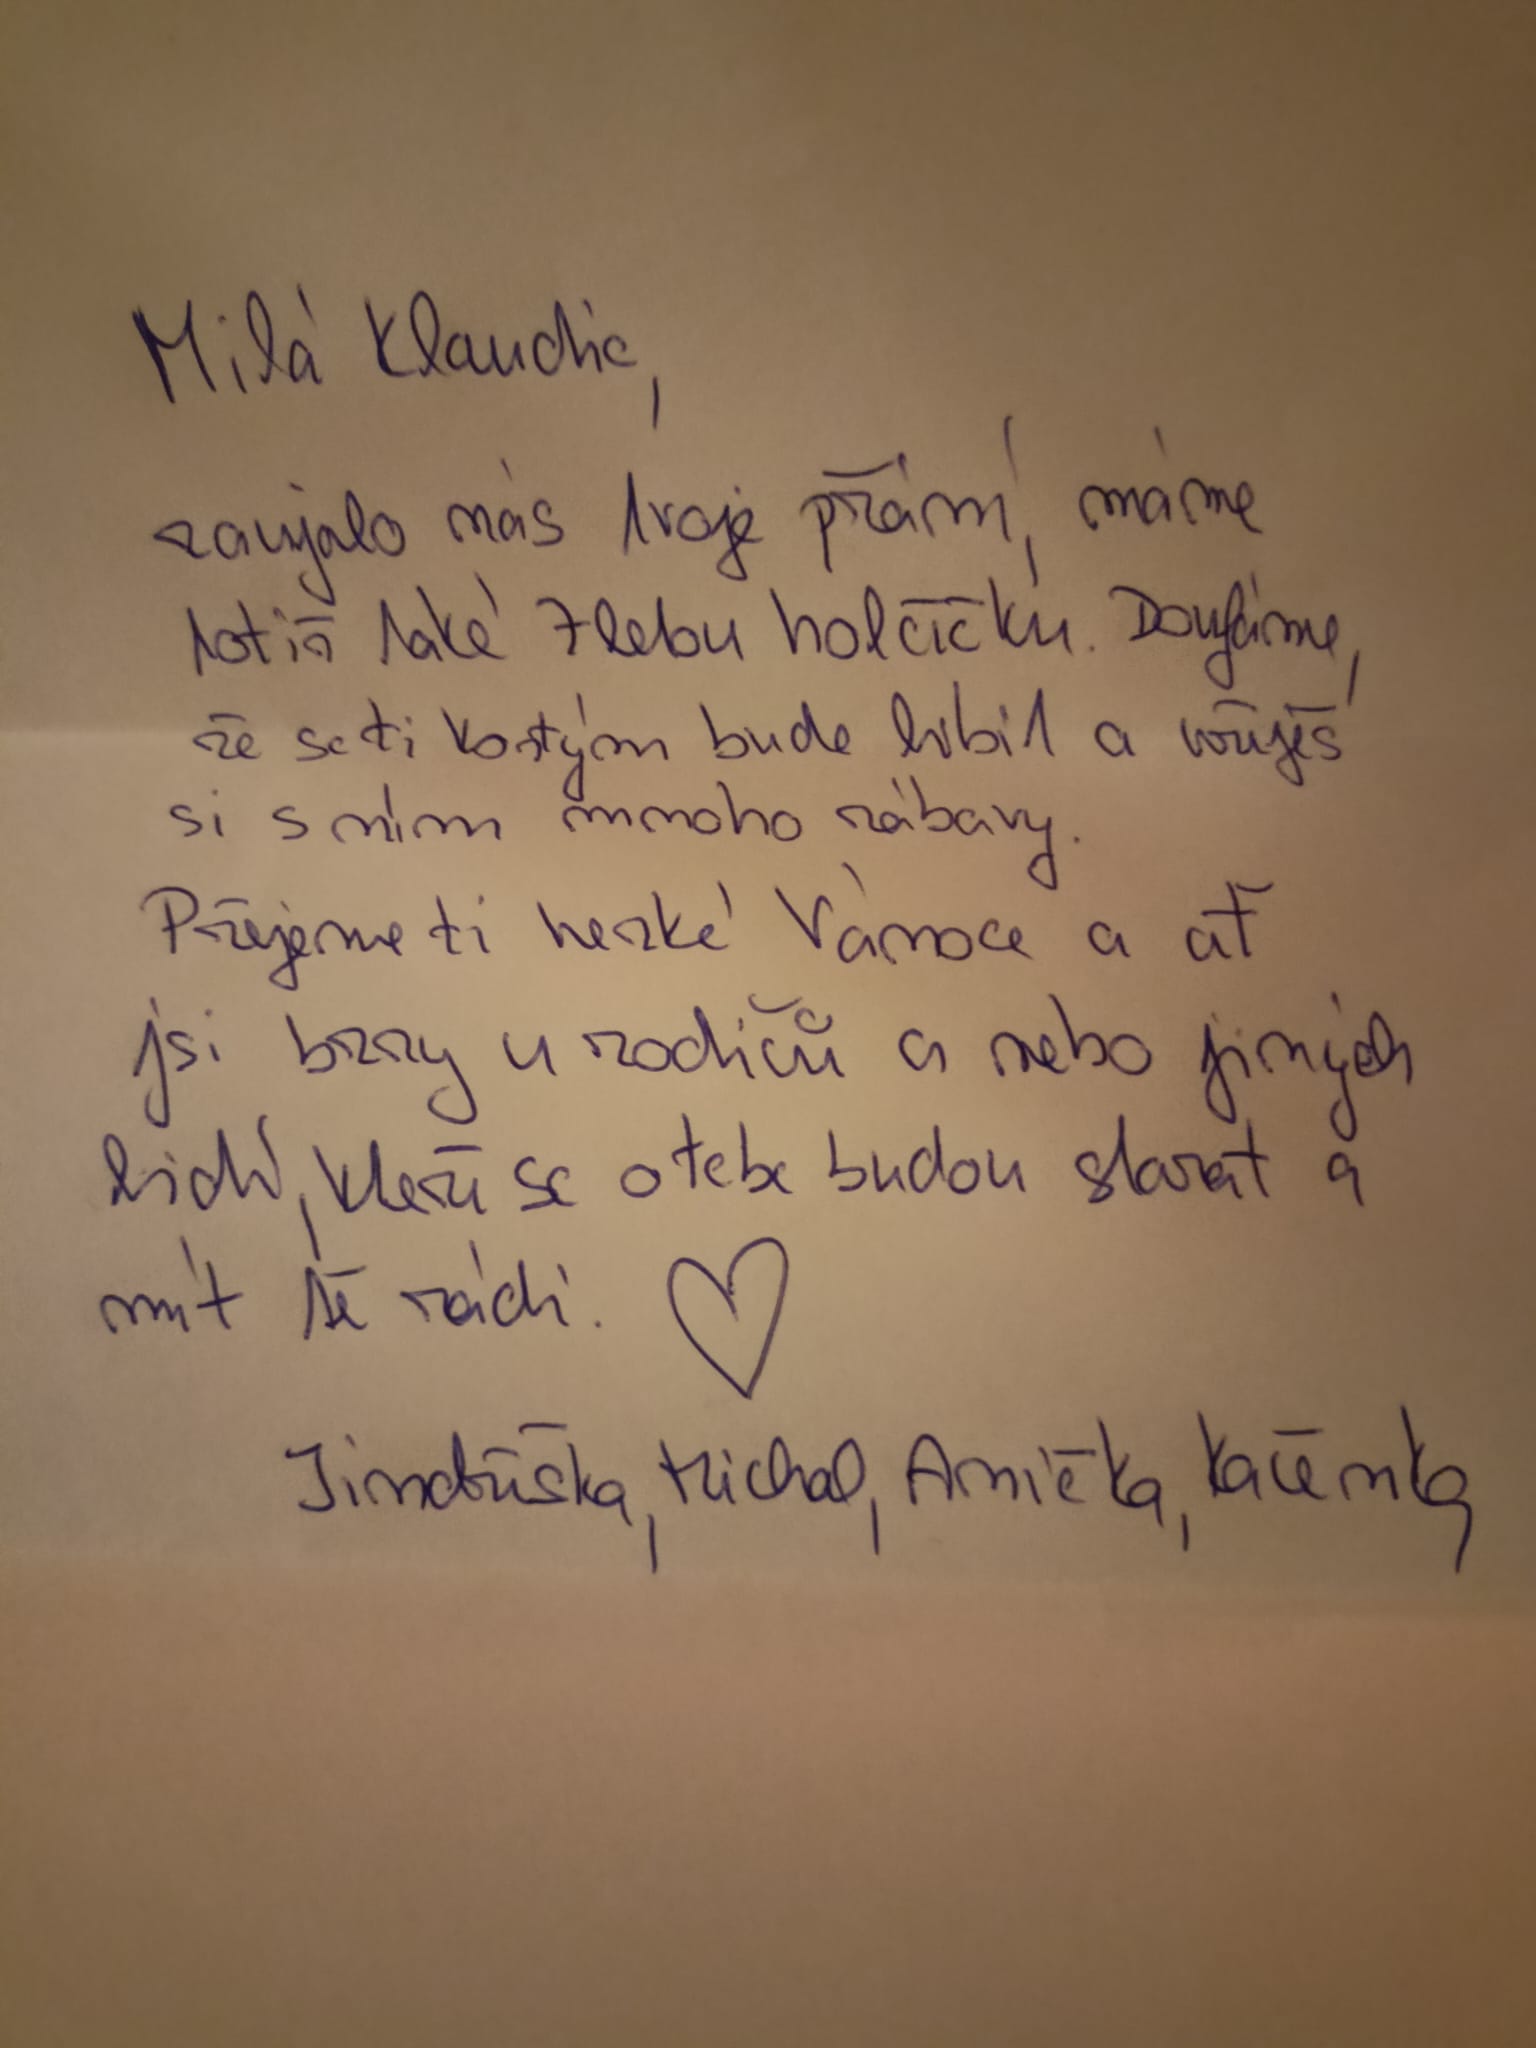 Milá Klaudie,
zaujalo nás tvoje přání, máme
totiž také 7letou holčičku. Doufáme,
že se ti kostým bude líbit a užiješ
si s ním mnoho zábavy.
Přejeme ti hezké Vánoce a ať
jsi brzy u rodičů a nebo jiných
lidí, kteří se o tebe budou starat a
mít tě rádi.
Jindřiška, Michal, Anička, Kačenka